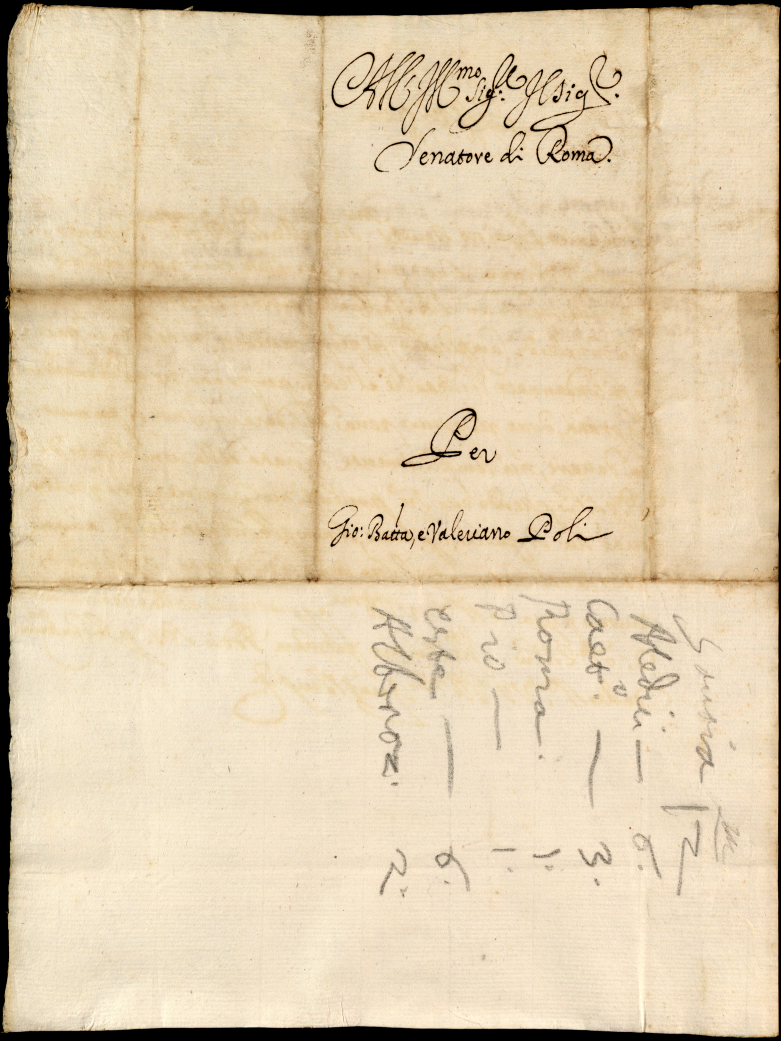 All' Ill.mo Sig.re Il Sig.re
Senatore di Roma.
Per
Gio: Batta, e Valeriano Poli
Medici — 6.
Caet.o — 3.
Roma. 1.
Pio — 1.
Este — 6.
Albornoz. 2.